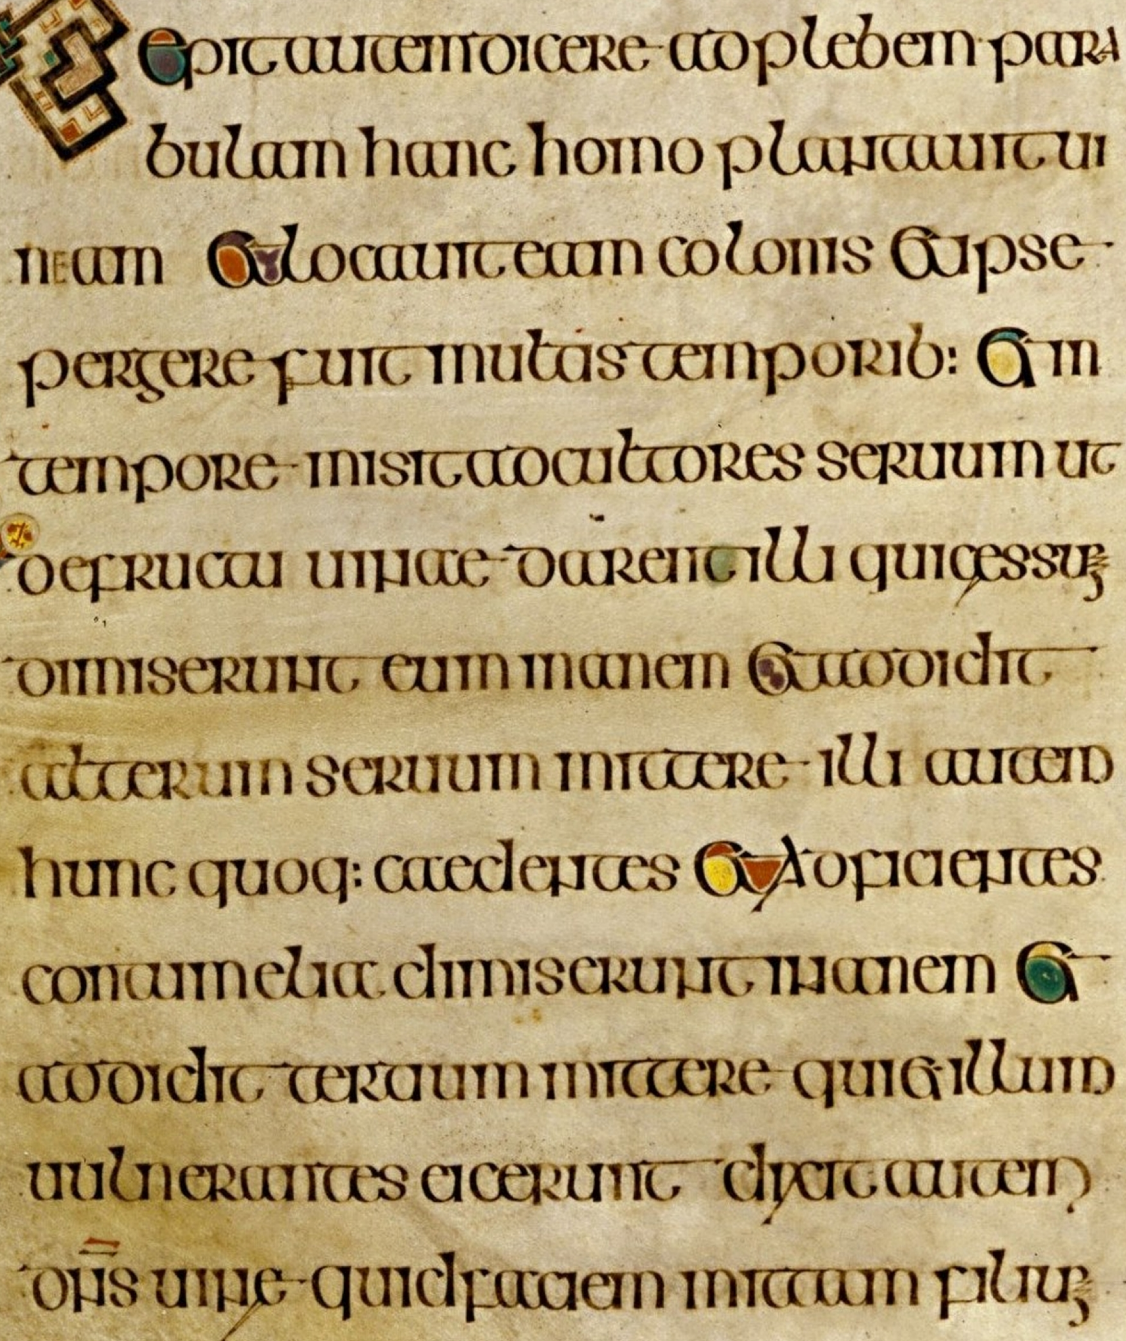 Coepit autem dicere ad plebem para
bulam hanc homo plantauit ui
neam Et locauit eam colonis Et ipse
pergere fuit multis temporib: Et in
tempore misit ad cultores seruum ut
de fructu uineae darent illi qui caessum
dimiserunt eum inanem Et addidit
alterum seruum mittere illi autem
hunc quoq: caedentes Et adficientes
contumelia dimiserunt inanem Et
addidit tertium mittere qui et illum
uulnerantes eicerunt dixit autem
dns uineae quid faciam mittam filium